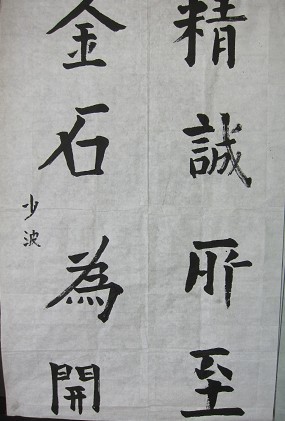 精誠所至
金石為開
少波